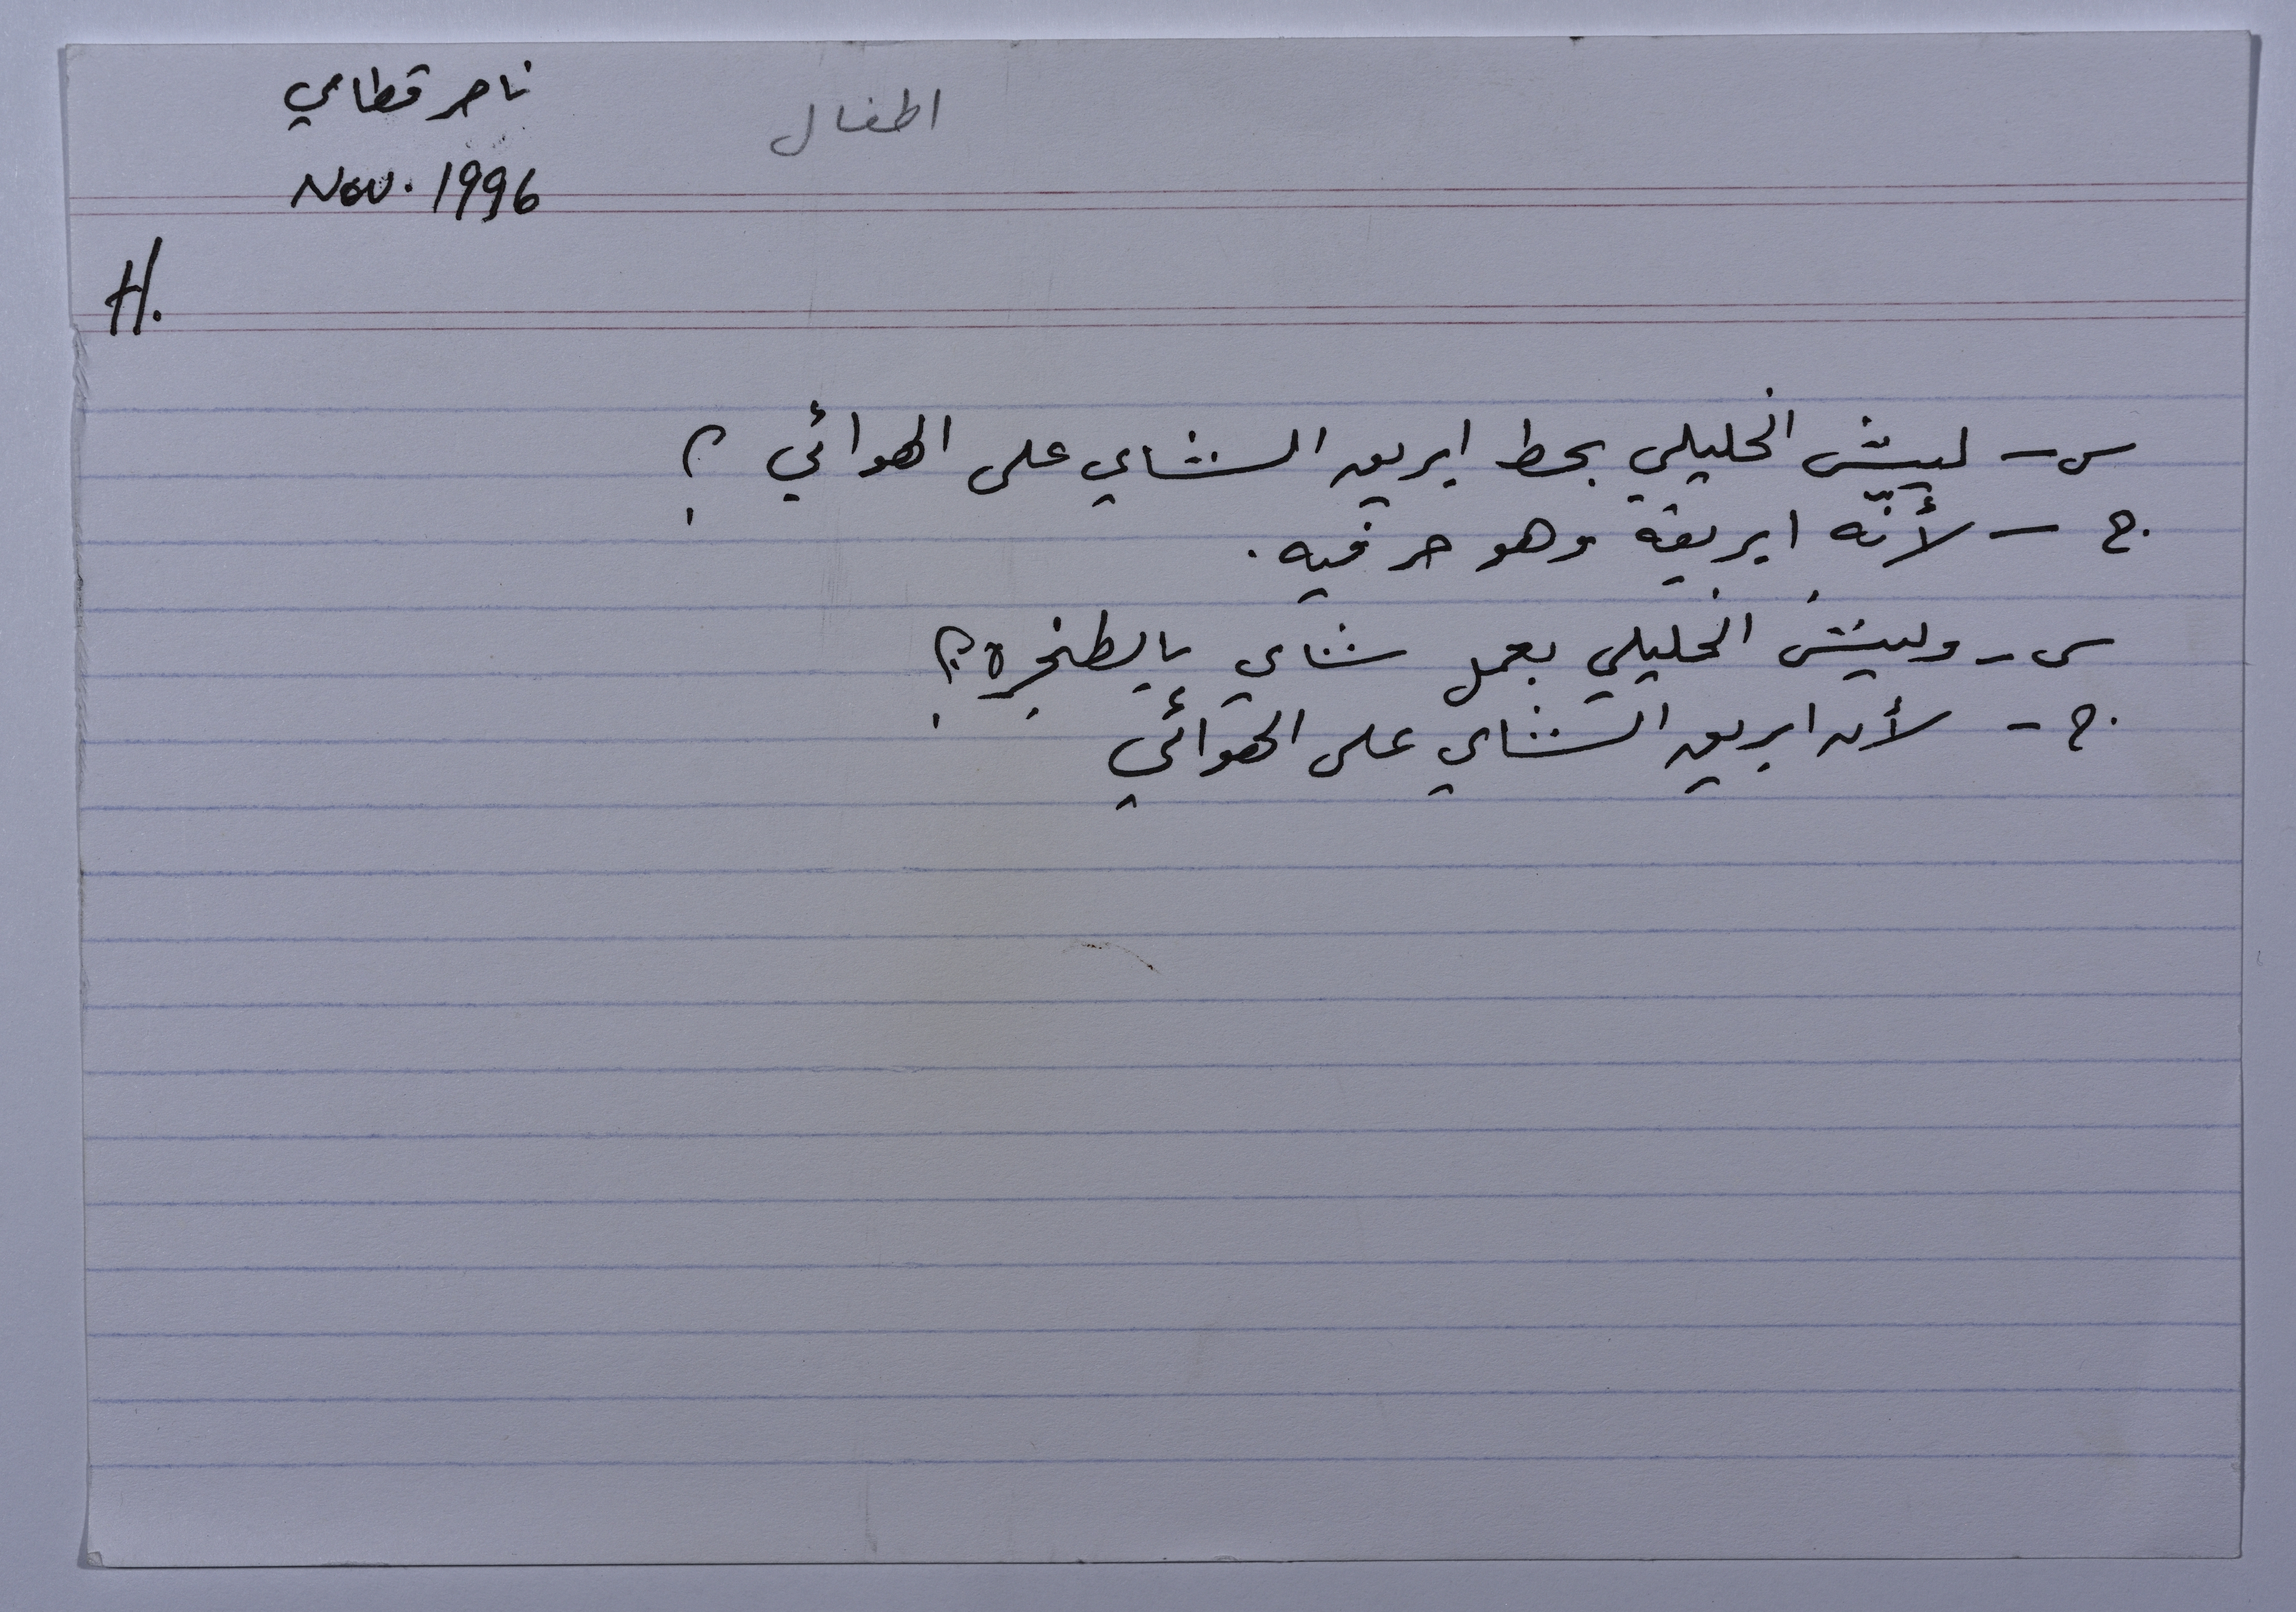 اطفال
ناصر قطامي
Nov. 1996
H.
س - ليش الخليلي بحط ابريق الشاي على الهوائي ؟
ج - لأنّه ابريقه وهو حر فيه.
س - وليش الخليلي بعمل شاي بالطنجره؟
ج - لأن ابريق الشاي على الهوائي